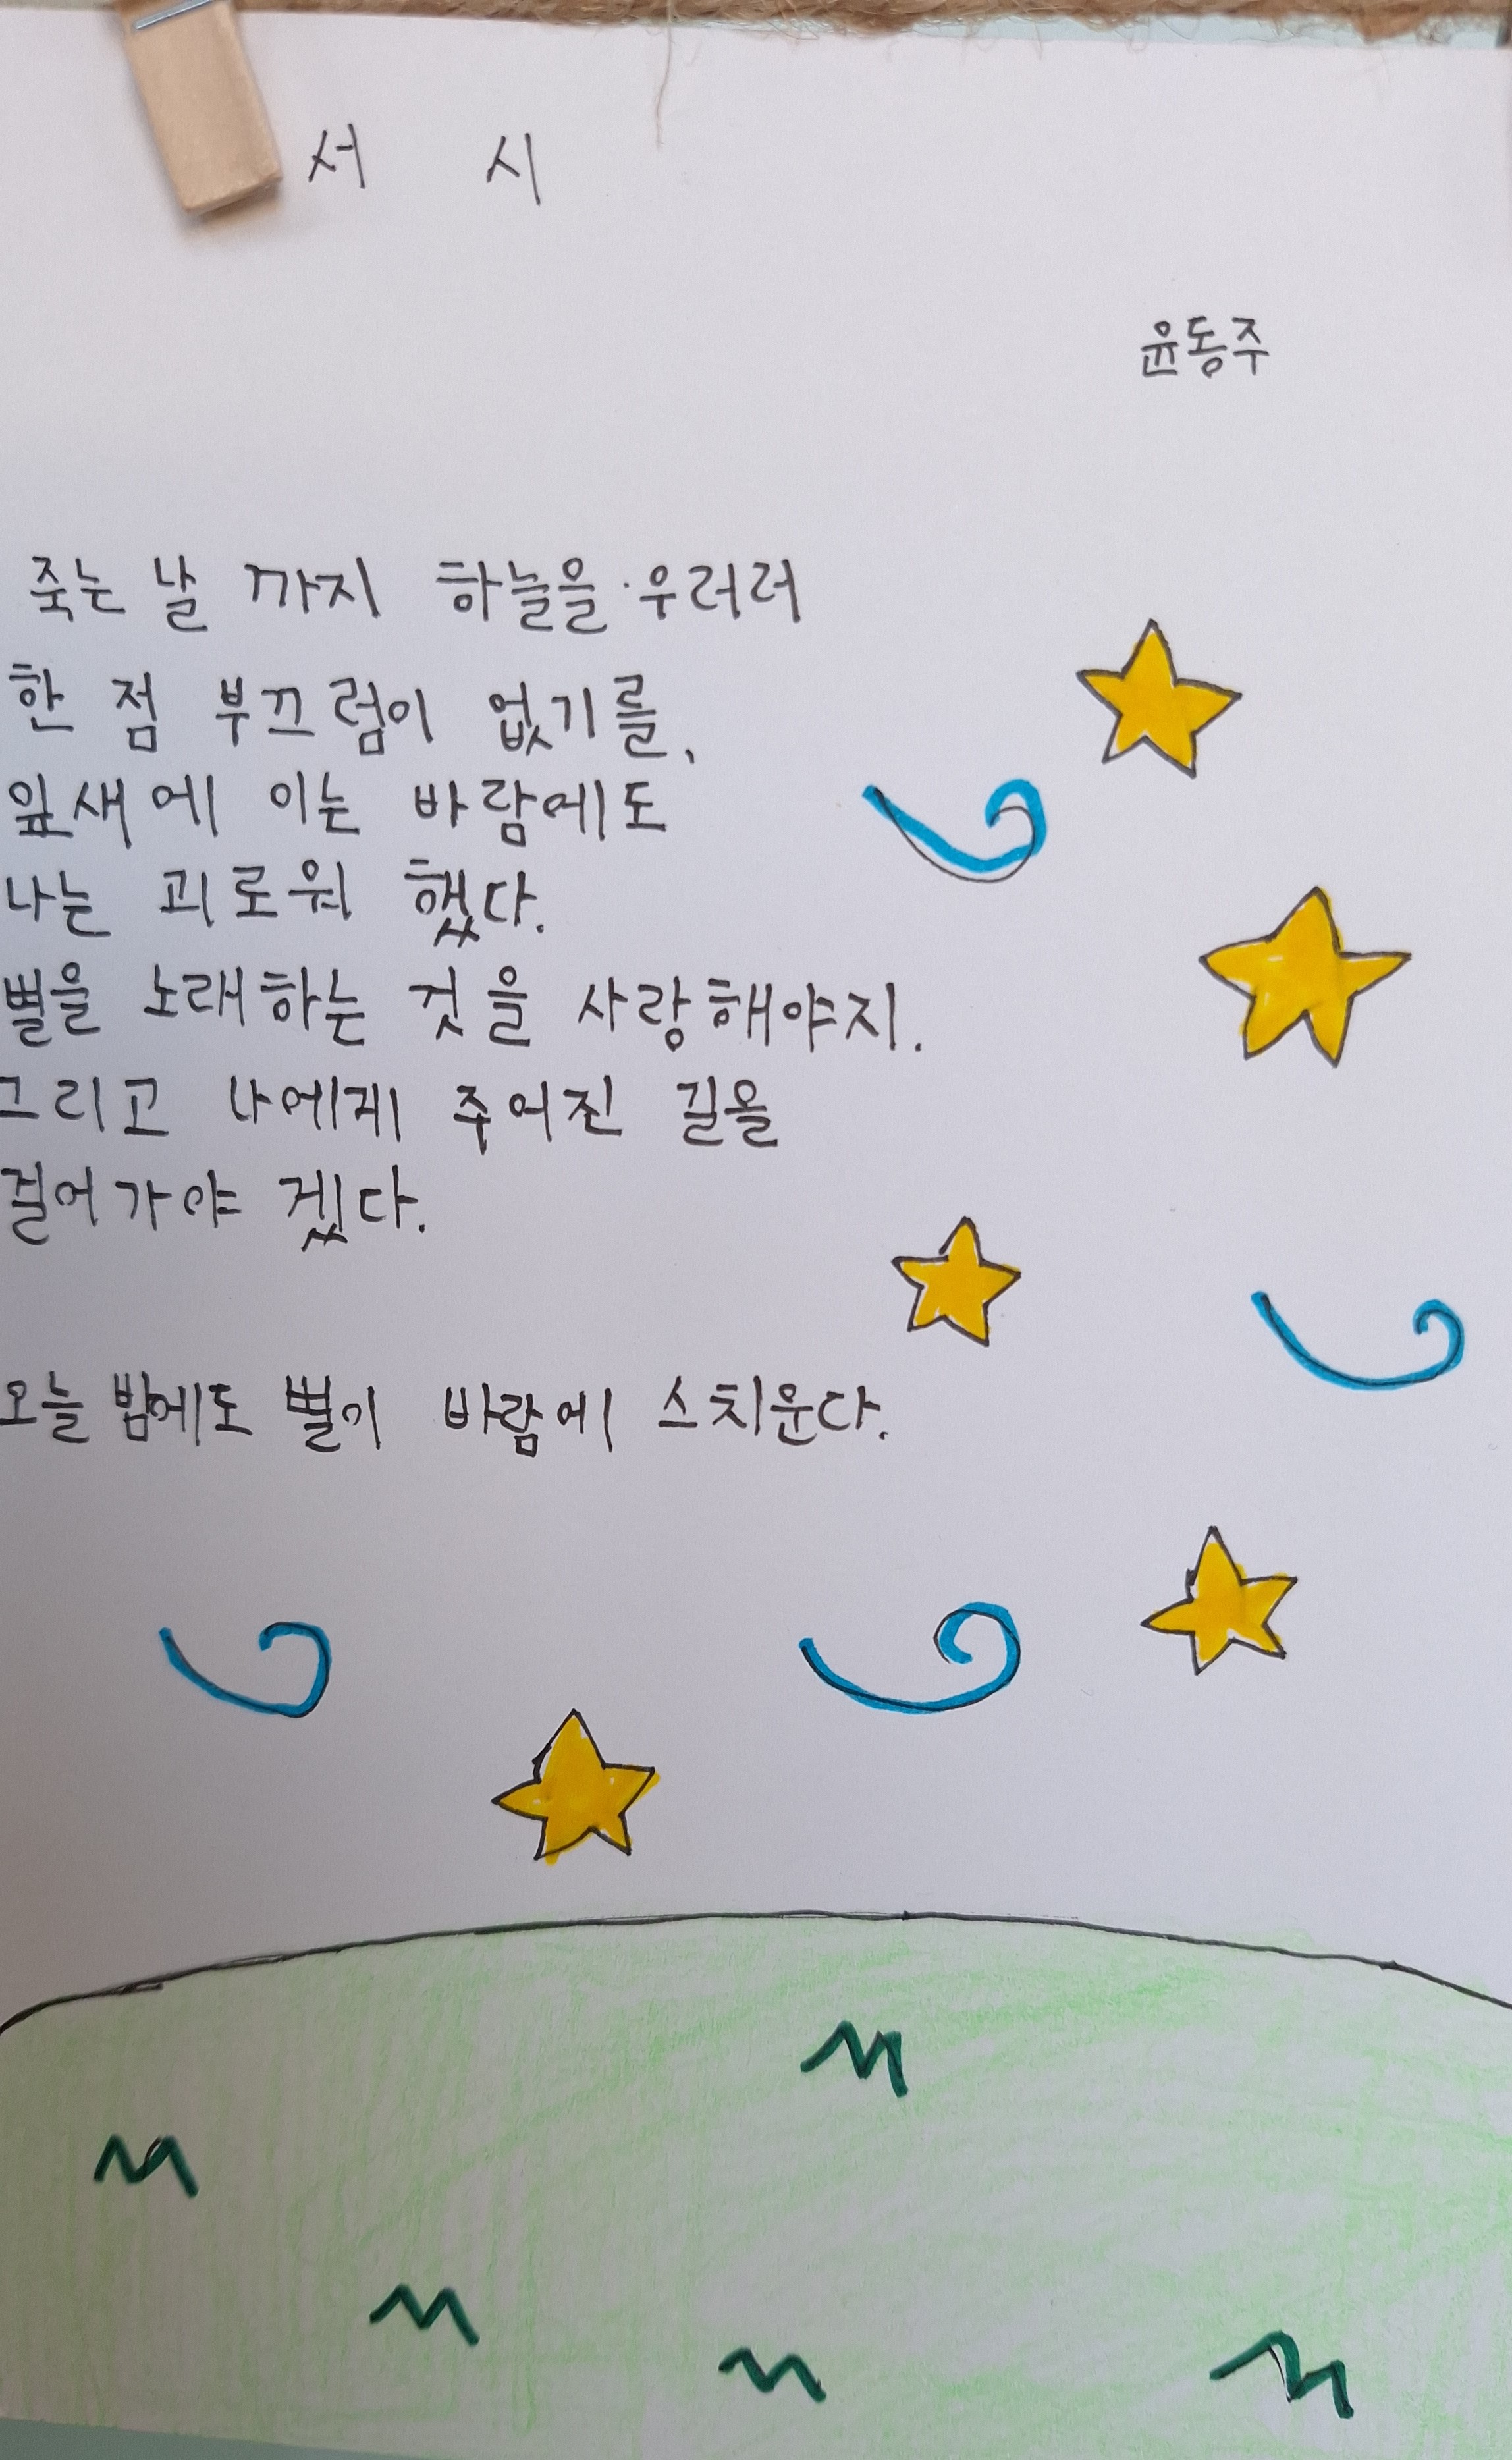 서 시
윤동주
죽는 날 까지 하늘을 우러러
한 점 부끄럼이 없기를,
잎새에 이는 바람에도
나는 괴로워 했다.
별을 노래하는 것을 사랑해야지.
그리고 나에게 주어진 길을
걸어가야 겠다.
오늘 밤에도 별이 바람에 스치운다.